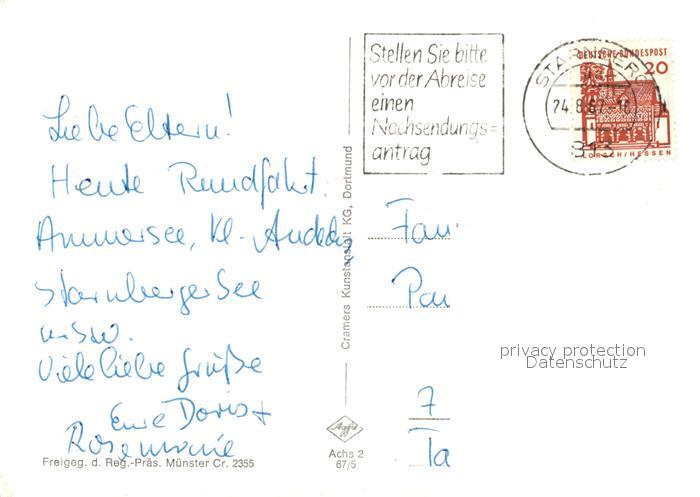 Liebe Eltern!
Heute Rundfahrt.
Ammersee, Kl. Andechs,
Starnberger See
usw.
Viele liebe Grüße
Eure Doris +
Rosemarie
Freigeg. d. Reg.-Präs. Münster Cr. 2355
Cramers Kunstanstalt KG, Dortmund
Agfa
Achs 2
67/5
Stellen Sie bitte
vor der Abreise
einen
Nachsendungs=
antrag
STARNBERG
24.8.67
813
DEUTSCHE BUNDESPOST
20
LORSCH/HESSEN
Fam
7
privacy protection
Datenschutz